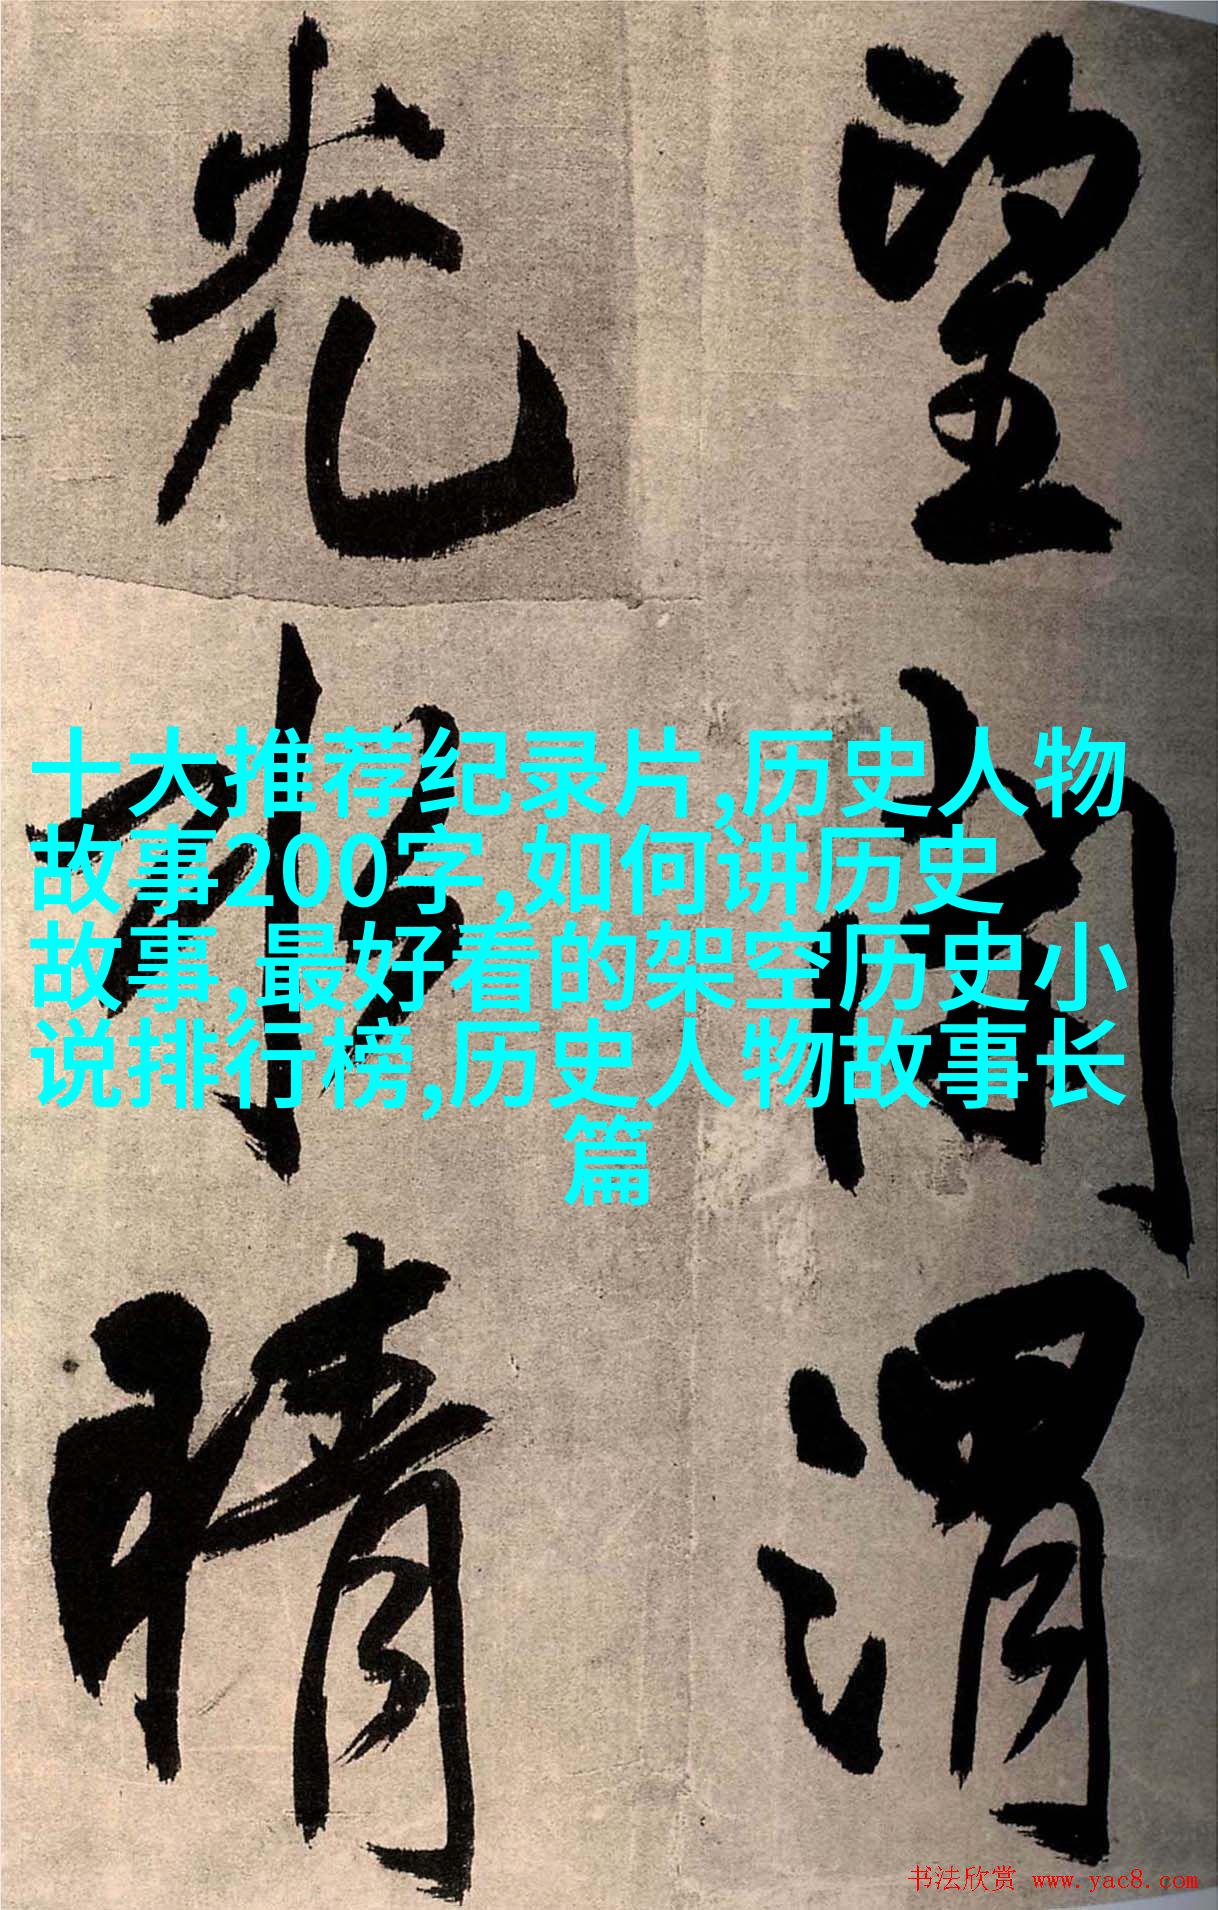 望 渭
光 晴
十大推荐纪录片,历史人物
故事200字,如何讲历史
故事,最好看的架空历史小
说排行榜,历史人物故事长
篇
书法欣赏 www.yac8.com